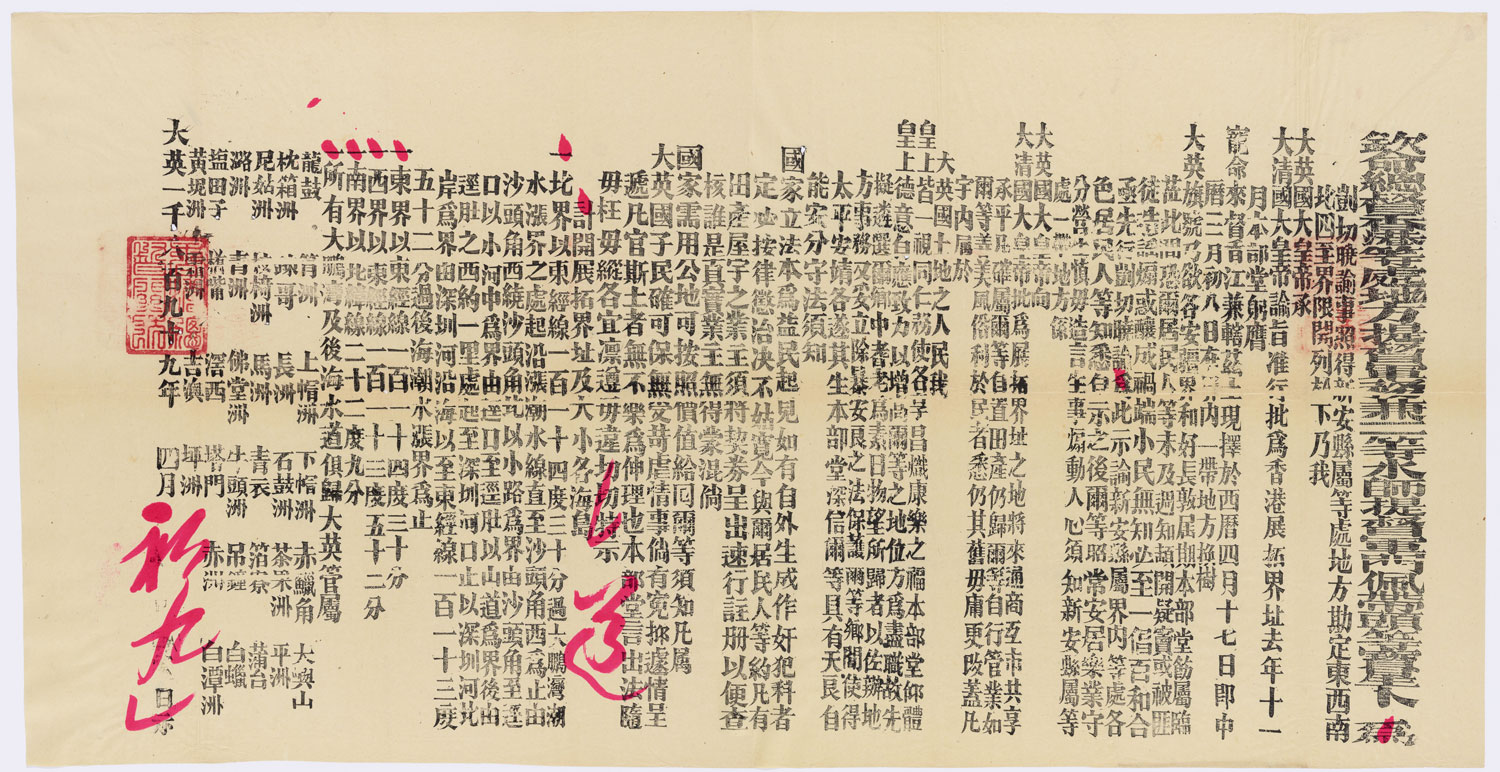 欽命總督香港等處地方提督軍務兼 一等水師提督軍門佩帶頭等寶星卜 爲
剴切曉諭事照得新安縣屬等處地方勘定東西南
北四至界限開列於下乃我
大英國大皇帝承
大清國大皇帝諭旨准行批爲香港展拓界址去年十一
月本部堂躬膺
寵命來督香江兼轄茲土現擇於西曆四月十七日即中
曆三月初八日在界內一帶地方換樹
大英旗號乃欲各安疆界和好長敦屆期本部堂飭屬臨
茲此間恐爾居民人等未及週知頭開疑竇或被匪
徒造謠煽或釀成禍端小民無知必至一倡百和合
亟先行剴切曉諭爲此示諭新安縣屬界內等處各
色居民人等知悉自示之後爾等照常安居樂業守
分營生慎毋造言生事煽動人心須知新安縣屬等
處一帶地方係
大英國大皇帝向
大清國大皇帝批爲展拓界址之地將來通商互市共享
承平爲確屬爾等自置田產仍歸爾等自行管業如
爾等美風俗利於民者悉仍其舊毋庸更改蓋凡
宇內屬於
大英國土地之人民我
皇上皆一視同仁務使各享昌熾康樂之福本部堂仰體
皇上德意自應致力以增爾等之地位方爲盡職故先
擬遴選爾鄉中耆老爲素日物望所歸者以佐辦地
方事務又立除暴安良之法保護爾等鄉閭使得
太平安靖各遂其生本部堂深信爾等具有天良自
能安分守法須知
國家立法本爲益民起見如有自外生成作奸犯科者
定必按律懲治決不姑寬今與爾居民人等約凡有
田產屋宇之業主須將契券呈出速行註册以便查
核誰是真管業主無得蒙混倘
國家需用公地可按照價值給回爾等須知凡屬
大英國子民確可保無受苛虐情事倘有冤抑遽情呈
遞凡官斯土者無不樂爲伸理也本部堂言出法隨
毋枉毋縱各宜凛遵毋違切切特示
計開展拓界址及大小各海島
一北界以東經線一百一十四度三十分過大鵬灣潮
水漲界之處起沿漲潮水線直至沙頭角西爲止由
沙頭角西繞沙頭角北以小路爲界由沙頭角至逕
口以小河中爲界由逕口至逕肚以山道爲界後由
逕肚之西約一里處起至深圳河口止以深圳河北
岸爲界由深圳河沿海以至東經線一百一十三度
五十二分過後海潮水漲界爲止
一東界以東經線一百一十四度三十分
一西界以東經線一百一十三度五十二分
一南界以北緯線二十二度九分
一所有大鵬海及後海水道俱歸大英管屬
龍鼓 筲洲 上帽洲 下帽洲 赤鱲角 大嶼山
枕箱洲 竦哥 長洲 石鼓洲 茶果洲 平洲
尼姑洲 椅洲 馬洲 青衣 箔寮 蒲台
潞洲 吉洲 佛堂洲 牛頭洲 吊鐘 白蠟
塩田子 滘西 塔門 赤洲 白潭洲
黃堤洲 吉澳 坪洲
大英一千八百九十九年 四月 日示